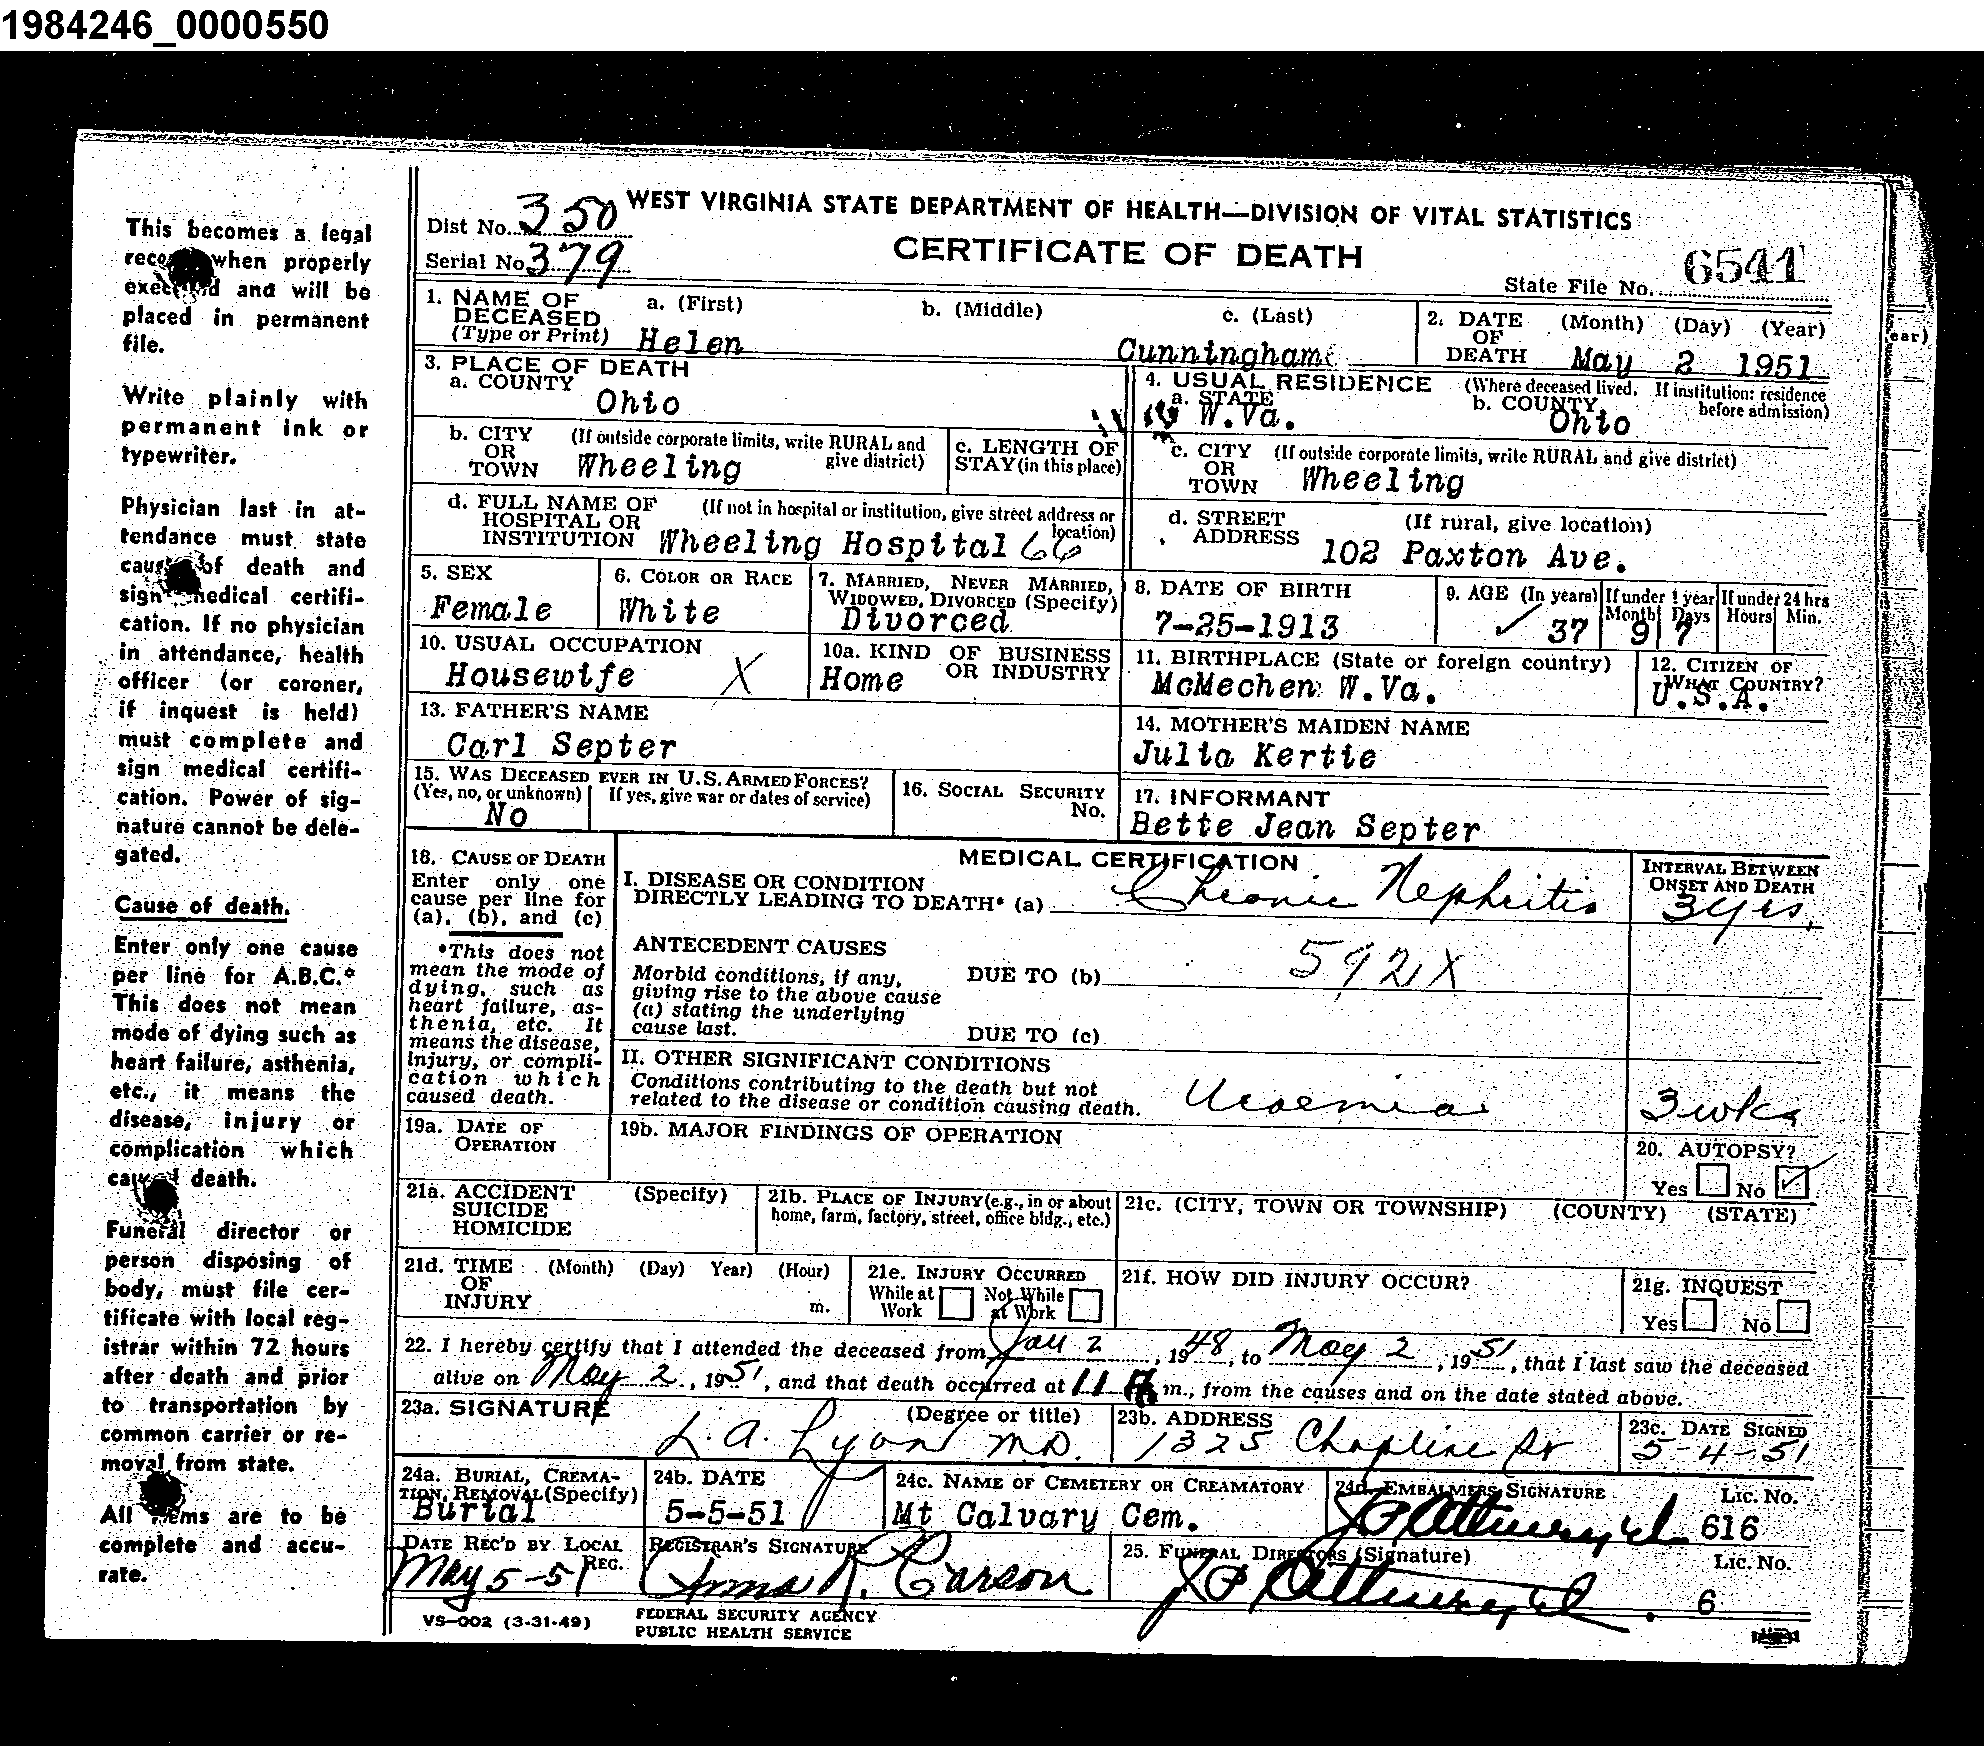 1984246_0000550
This becomes a legal
when properly
and will be
placed in permanent
file.
Write plainly with
permanent ink or
typewriter.
Physician last in at-
tendance must state
of death and
sign medical certifi-
cation. If no physician
in attendance, health
officer (or coroner,
if inquest is held)
must complete and
sign medical certifi-
cation. Power of sig-
nature cannot be dele-
gated.
Cause of death.
Enter only one cause
per line for A.B.C.*
This does not mean
mode of dying such as
heart failure, asthenia,
etc., it means the
disease, injury or
complication which
death.
Funeral director or
person disposing of
body, must file cer-
tificate with local reg-
istrar within 72 hours
after death and prior
to transportation by
common carrier or re-
moval from state.
All are to be
complete and accu-
rate.
Dist No. 350
WEST VIRGINIA STATE DEPARTMENT OF HEALTH—DIVISION OF VITAL STATISTICS
Serial No. 379
CERTIFICATE OF DEATH
State File No. 6541
1. NAME OF DECEASED (Type or Print) a. (First) b. (Middle) c. (Last)
Helen Cunningham
2. DATE OF DEATH (Month) (Day) (Year)
May 2 1951
3. PLACE OF DEATH
a. COUNTY
Ohio
4. USUAL RESIDENCE (Where deceased lived. If institution: residence before admission)
a. STATE W.Va. b. COUNTY Ohio
b. CITY OR TOWN (If outside corporate limits, write RURAL and give district)
Wheeling
c. LENGTH OF STAY (in this place)
c. CITY OR TOWN (If outside corporate limits, write RURAL and give district)
Wheeling
d. FULL NAME OF HOSPITAL OR INSTITUTION (If not in hospital or institution, give street address or location)
Wheeling Hospital 66
d. STREET ADDRESS (If rural, give location)
102 Paxton Ave.
5. SEX
Female
6. COLOR OR RACE
White
7. MARRIED, NEVER MARRIED, WIDOWED, DIVORCED (Specify)
Divorced
8. DATE OF BIRTH
7-25-1913
9. AGE (In years) 37
If under 1 year Month 9 Days 7
If under 24 hrs Hours Min.
10. USUAL OCCUPATION
Housewife X
10a. KIND OF BUSINESS OR INDUSTRY
Home
11. BIRTHPLACE (State or foreign country)
McMechen W.Va.
12. CITIZEN OF WHAT COUNTRY?
U.S.A.
13. FATHER'S NAME
Carl Septer
14. MOTHER'S MAIDEN NAME
Julia Kertie
15. WAS DECEASED EVER IN U.S. ARMED FORCES?
(Yes, no, or unknown) If yes, give war or dates of service)
No
16. SOCIAL SECURITY No.
17. INFORMANT
Bette Jean Septer
18. CAUSE OF DEATH
Enter only one
cause per line for
(a), (b), and (c)
*This does not
mean the mode of
dying, such as
heart failure, as-
thenia, etc. It
means the disease,
injury, or compli-
cation which
caused death.
MEDICAL CERTIFICATION
INTERVAL BETWEEN ONSET AND DEATH
I. DISEASE OR CONDITION
DIRECTLY LEADING TO DEATH* (a) Chronic Nephritis 3 yrs.
ANTECEDENT CAUSES
Morbid conditions, if any,
giving rise to the above cause
(a) stating the underlying
cause last.
DUE TO (b) 592X
DUE TO (c)
II. OTHER SIGNIFICANT CONDITIONS
Conditions contributing to the death but not
related to the disease or condition causing death. Uraemia 3 wks
19a. DATE OF OPERATION
19b. MAJOR FINDINGS OF OPERATION
20. AUTOPSY?
Yes No
21a. ACCIDENT SUICIDE HOMICIDE (Specify)
21b. PLACE OF INJURY (e.g., in or about home, farm, factory, street, office bldg., etc.)
21c. (CITY, TOWN OR TOWNSHIP) (COUNTY) (STATE)
21d. TIME OF INJURY (Month) (Day) Year) (Hour) m.
21e. INJURY OCCURRED
While at Work Not While at Work
21f. HOW DID INJURY OCCUR?
21g. INQUEST
Yes No
22. I hereby certify that I attended the deceased from Jan 2, 1948, to May 2, 1951, that I last saw the deceased
alive on May 2, 1951, and that death occurred at 11 m., from the causes and on the date stated above.
23a. SIGNATURE (Degree or title)
L. A. Lyon M.D.
23b. ADDRESS
1325 Chapline St
23c. DATE SIGNED
5-4-51
24a. BURIAL, CREMATION, REMOVAL (Specify)
Burial
24b. DATE
5-5-51
24c. NAME OF CEMETERY OR CREAMATORY
Mt Calvary Cem.
24d. EMBALMERS SIGNATURE Lic. No.
616
DATE REC'D BY LOCAL REG.
May 5-51
REGISTRAR'S SIGNATURE
Anna K. Carson
25. FUNERAL DIRECTORS (Signature) Lic. No.
6
VS-002 (3-31-49)
FEDERAL SECURITY AGENCY
PUBLIC HEALTH SERVICE
ear)